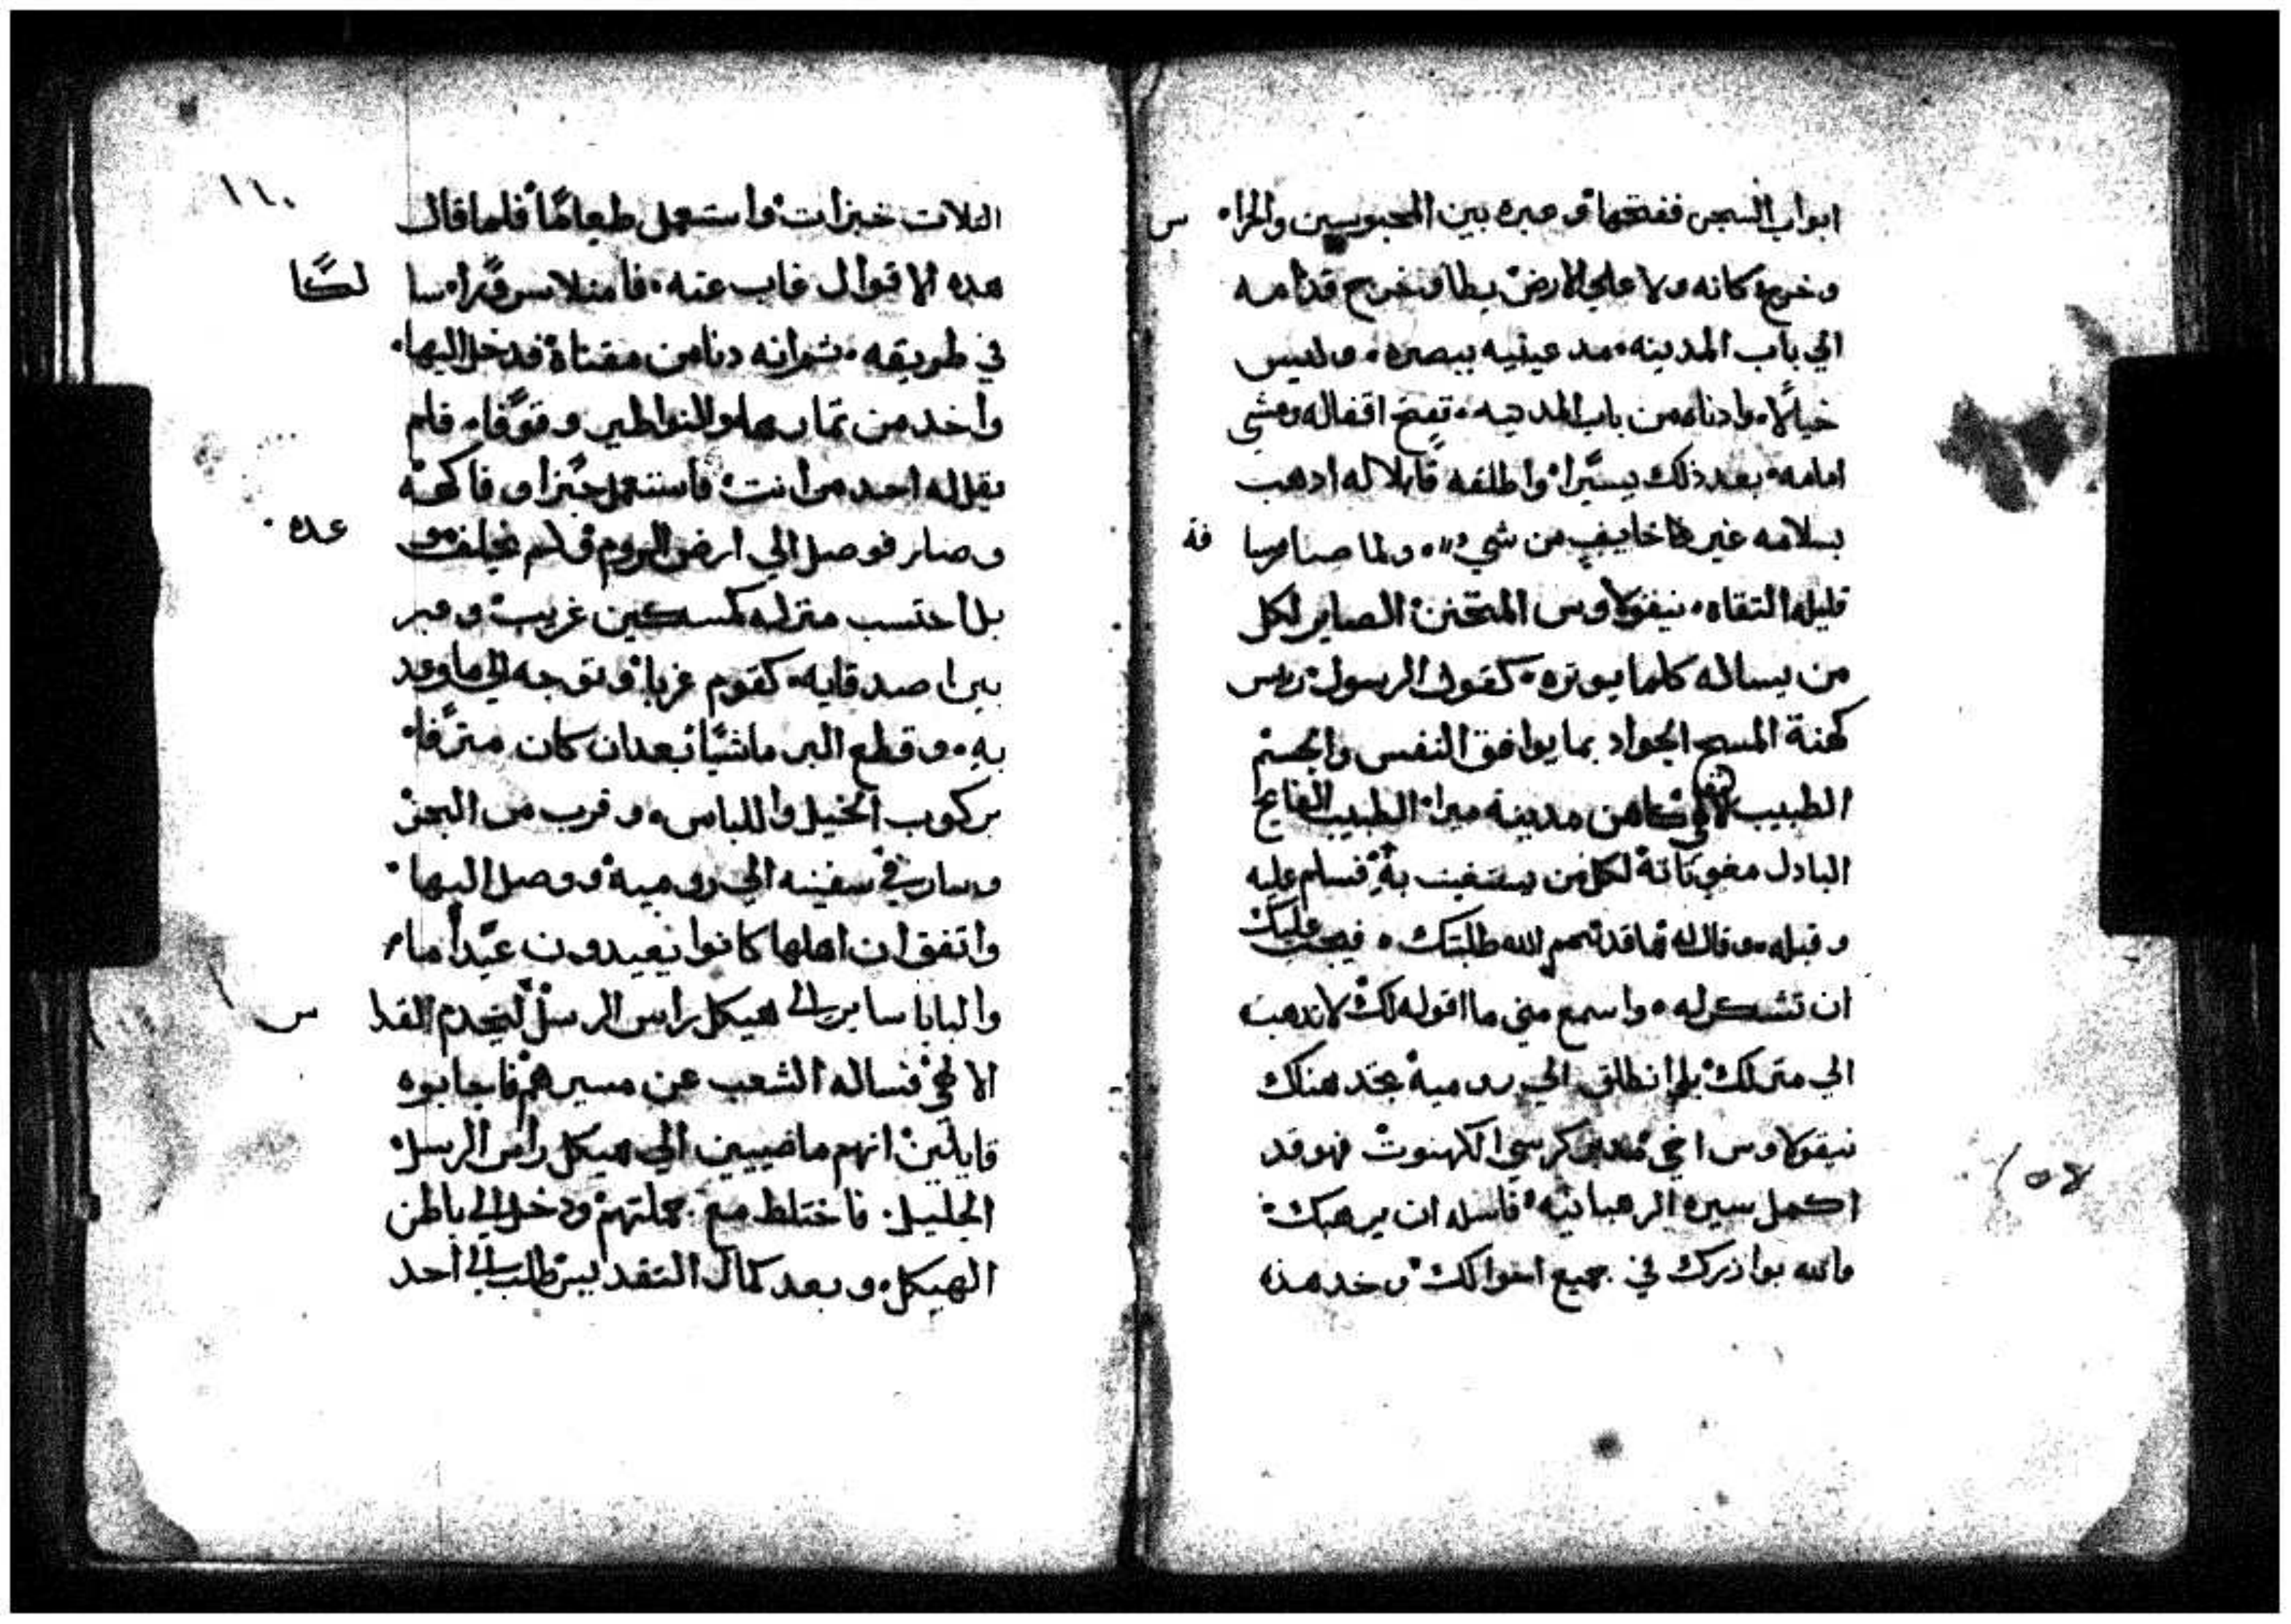 ابواب السجن ففتحها وعبره بين المحبوسين والحرا س
وخرج كانه ولا علي الارض يطا وخرج قدامه
الي باب المدينه مد عينيه ببصره وليس
خيالا وادناه من باب المدينه تفتح اقفاله ومشي
امامه بعد ذلك يسيرا واطلقه قايلا له ادهب
بسلامه غير خايف من شي ولما صار مسا فه
قليله التقاه نيقولاوس المتحنن الصاير لكل
من يساله كلما يوثره كقول الرسول ريس
كهنة المسيح الجواد بما يوافق النفس والجسم
الطبيب كاهن مدينة ميرا الطبيب
البادل مغوناته لكل من يستغيث به فسلم عليه
وقبله وقال له ها قد تمم الله طلبتك فيجب عليك
ان تشكر له واسمع مني ما اقوله لك لا تدهب
الي منزلك بل انطلق الي روميه تجد هناك
نيقولاوس اخي مدبر كرسي الكهنوت فهو قد
اكمل سيرة الرهبانيه فاسله ان يرهبك
والله يوازرك في جميع احوالك وخد هذه
١٥٧
١١٠
التلات خبزات واستعمل طعاما فلما قال
هده الاقوال غاب عنه فامتلا سرورا سا لكا
في طريقه ثم انه دنا من مقتاة فدخل اليها
واخد من تمارها والنواطير وقوفا فلم
يقل له احد من انت فاستعمل خبزا وفاكهة
وصار فوصل الي ارض الروم ولم يخلف وعده
بل احتسب منزله كمسكين غريب وعبر
بين اصدقايه كقوم غربا وتوجه الي ما وعد
به وقطع البر ماشيا بعدان كان مترفا
بركوب الخيل واللباس وقرب من البحر
وسار في سفينه الي روميه ووصل اليها
واتفق ان اهلها كانوا يعيدون عيدا ما
والبابا ساير الي هيكل راس الرسل ليخدم القدا س
الالهي فساله الشعب عن مسيرهم فاجابوه
قايلين انهم ماضيين الي هيكل راس الرسل
الجليل فاختلط مع جملتهم ودخل الي باطن
الهيكل وبعد كمال التقديس طلب الي احد